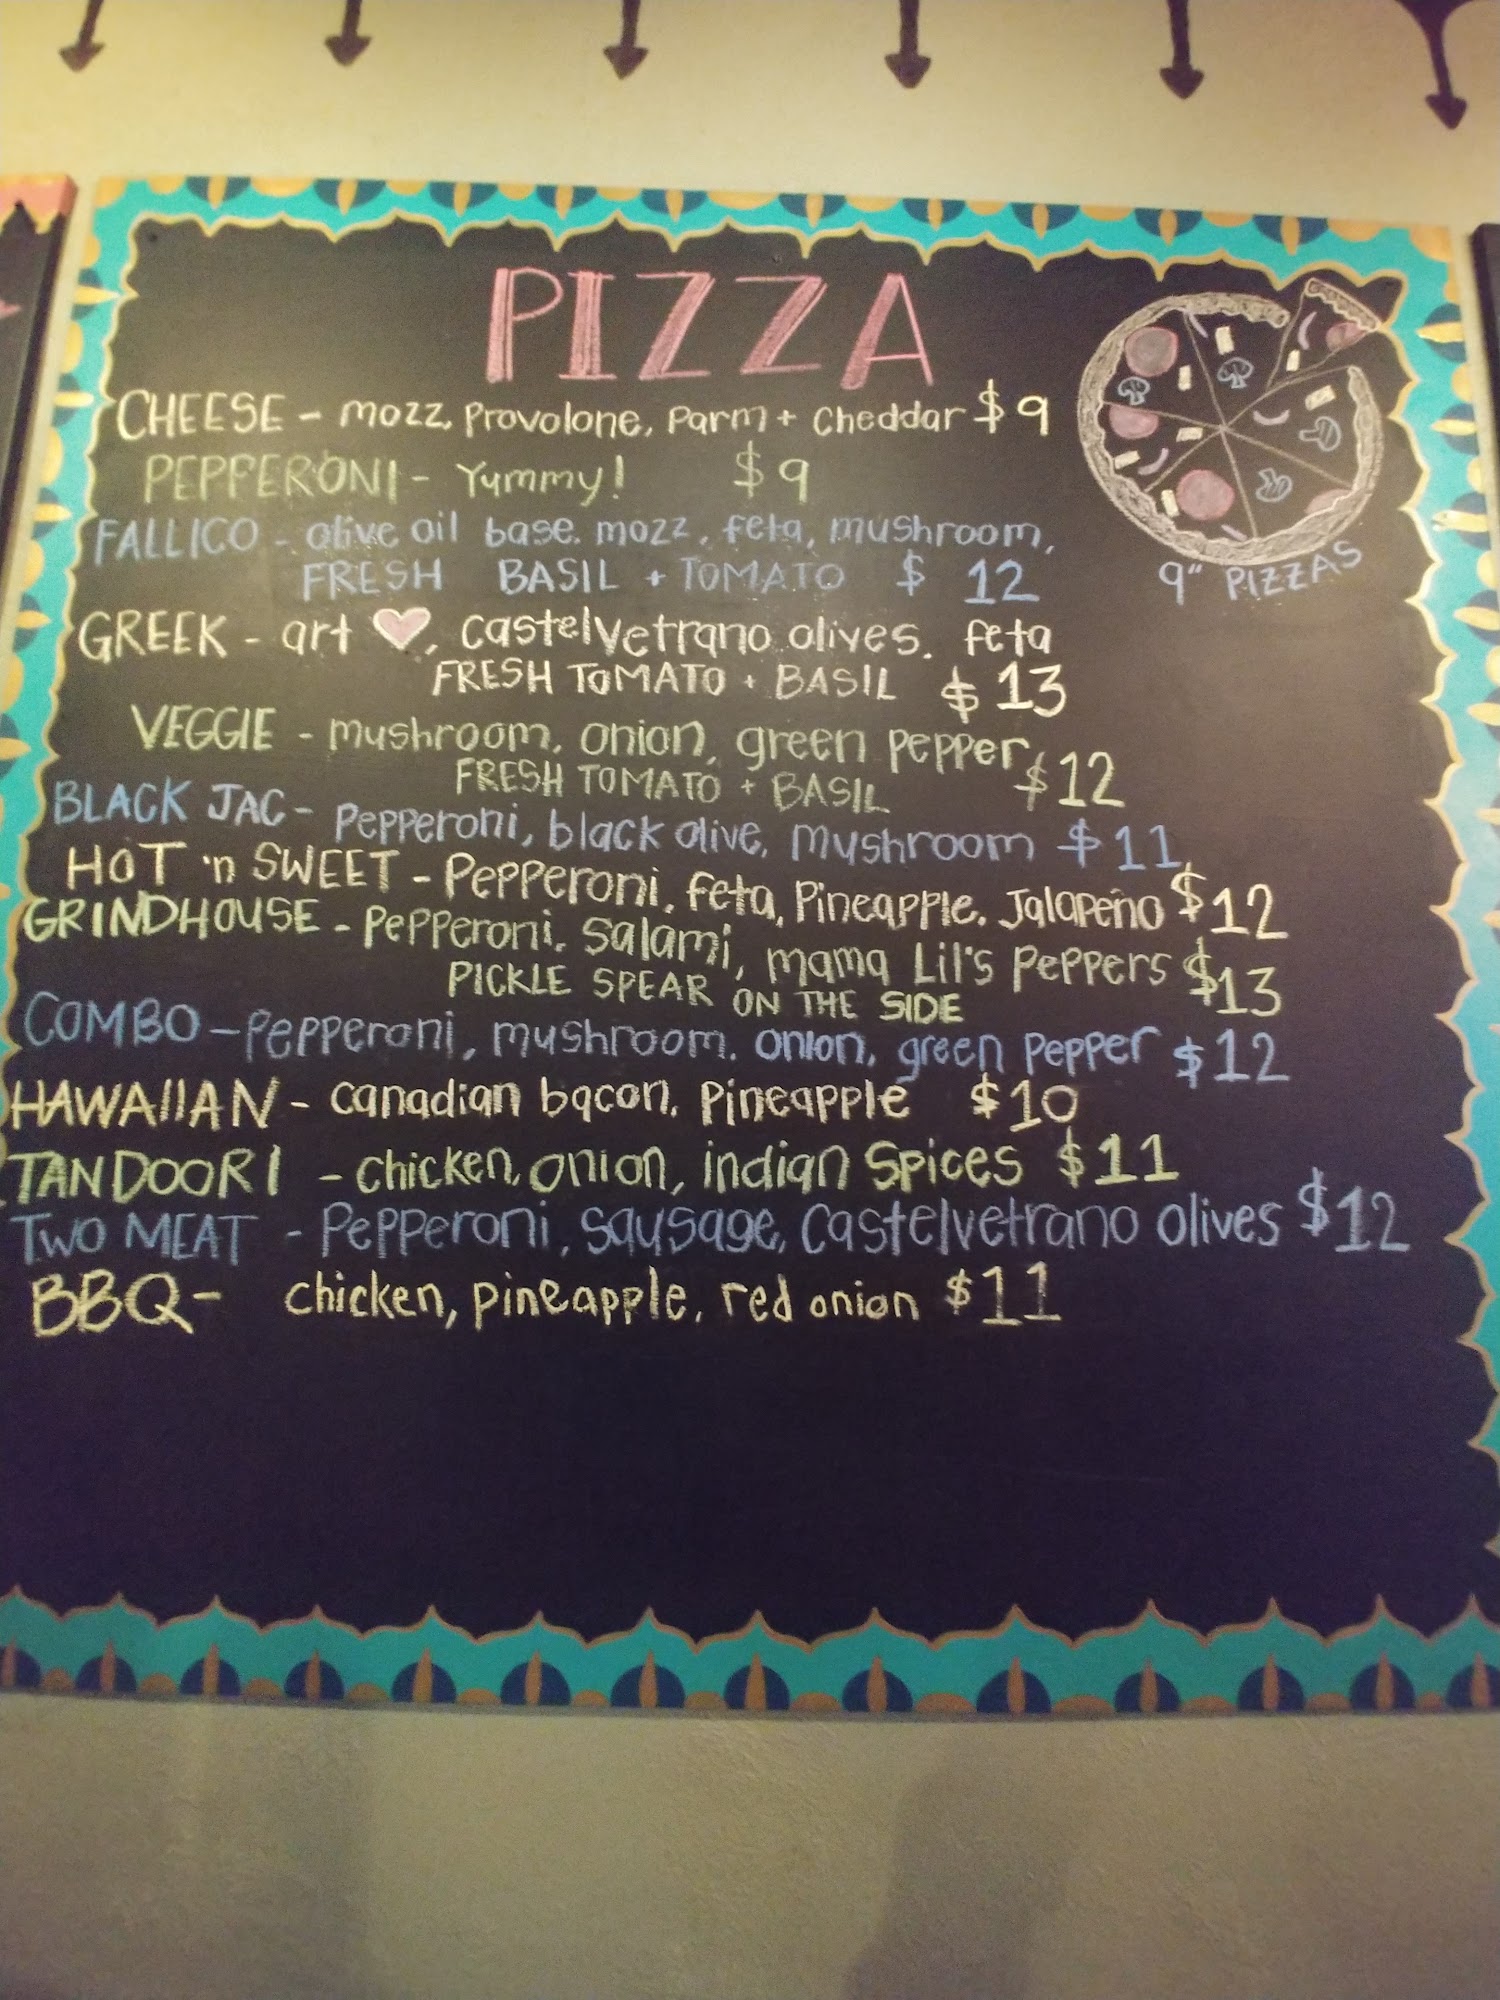 PIZZA
CHEESE - mozz, Provolone, Parm + Cheddar $9
PEPPERONI - Yummy! $9
FALLICO - olive oil base. mozz, feta, mushroom,
FRESH BASIL + TOMATO $ 12
9" PIZZAS
GREEK - art ♥, Castelvetrano olives. feta
FRESH TOMATO + BASIL $13
VEGGIE - mushroom, onion, green pepper
FRESH TOMATO + BASIL $12
BLACK JAC - Pepperoni, black olive, mushroom $11
HOT 'n SWEET - Pepperoni, feta, Pineapple, Jalapeño $12
GRINDHOUSE - Pepperoni, Salami, mama Lil's Peppers $13
PICKLE SPEAR ON THE SIDE
COMBO - Pepperoni, mushroom, onion, green Pepper $12
HAWAIIAN - Canadian bacon, Pineapple $10
TANDOORI - chicken, onion, indian Spices $11
TWO MEAT - Pepperoni, sausage, Castelvetrano olives $12
BBQ - chicken, pineapple, red onion $11